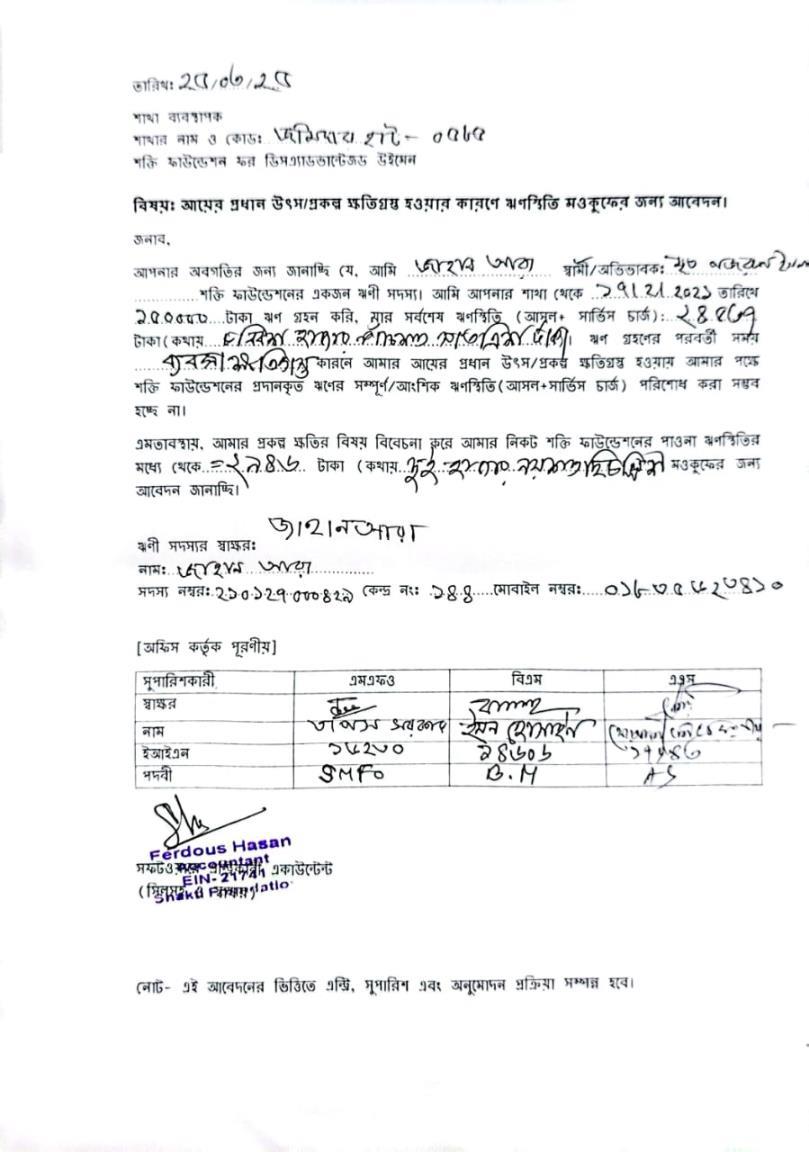 তারিখ: ২৫/০৬/২৫
শাখা ব্যবস্থাপক
শাখার নাম ও কোড: জমিদার হাট - ০৫৮৫
শক্তি ফাউন্ডেশন ফর ডিসএ্যাডভান্টেজড উইমেন
বিষয়: আয়ের প্রধান উৎস/প্রকল্প ক্ষতিগ্রস্থ হওয়ার কারণে ঋণস্থিতি মওকুফের জন্য আবেদন।
জনাব,
আপনার অবগতির জন্য জানাচ্ছি যে, আমি জাহান আরা স্বামী/অভিভাবক: মৃত
শক্তি ফাউন্ডেশনের একজন ঋণী সদস্য। আমি আপনার শাখা থেকে তারিখে
টাকা ঋণ গ্রহন করি, যার সর্বশেষ ঋণস্থিতি (আসল+ সার্ভিস চার্জ):
টাকা (কথায় চব্বিশ হাজার টাকা)। ঋণ গ্রহণের পরবর্তী সময়
ব্যবসা ক্ষতিগ্রস্থ কারনে আমার আয়ের প্রধান উৎস/প্রকল্প ক্ষতিগ্রস্থ হওয়ায় আমার পক্ষে
শক্তি ফাউন্ডেশনের প্রদানকৃত ঋণের সম্পূর্ণ/আংশিক ঋণস্থিতি(আসল+সার্ভিস চার্জ) পরিশোধ করা সম্ভব
হচ্ছে না।
এমতাবস্থায়, আমার প্রকল্প ক্ষতির বিষয় বিবেচনা করে আমার নিকট শক্তি ফাউন্ডেশনের পাওনা ঋণস্থিতির
মধ্যে থেকে =২৯৪৬ টাকা (কথায় দুই হাজার নয়শত ছিচল্লিশ মওকুফের জন্য
আবেদন জানাচ্ছি।
ঋণী সদস্যর স্বাক্ষর: জাহানআরা
নাম: জাহান আরা
সদস্য নম্বর: কেন্দ্র নং: ১৪৪ মোবাইল নম্বর:
[অফিস কর্তৃক পূরণীয়]
সুপারিশকারী এমএফও বিএম এএস
স্বাক্ষর
নাম তাপস সরকার ইমন হোসাইন
ইআইএন ১৫২৮০ ১৪৬০৬
পদবী SMFO B.M AS
Ferdous Hasan
Accountant
EIN-21741
Shakti Foundation
সফটওয়্যার এন্ট্রিকারী একাউন্টেন্ট
(সিলসহ ও স্বাক্ষর)
নোট- এই আবেদনের ভিত্তিতে এন্ট্রি, সুপারিশ এবং অনুমোদন প্রক্রিয়া সম্পন্ন হবে।